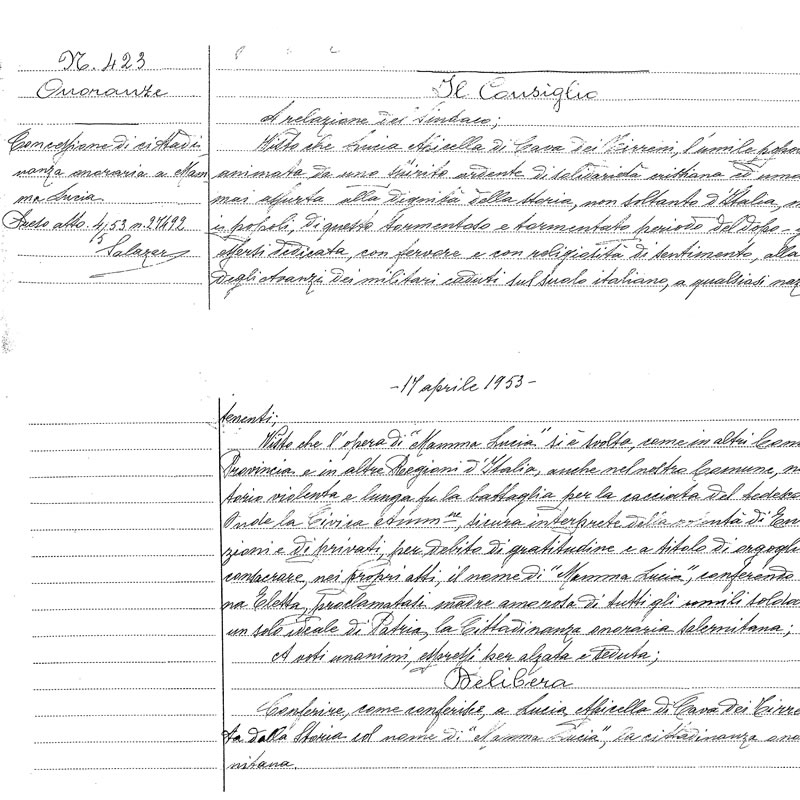 N. 423
Onoranze
Concessione di cittadi-
nanza onoraria a Mam
ma Lucia
Preso atto 4/5 53 n. 27492
Salazar
Il Consiglio
A relazione del Sindaco;
Visto che Lucia Apicella di Cava dei Tirreni, l'umile popo
animata da uno spirito ardente di solidarietà cristiana ed uma
mai assurta alla dignità della storia, non soltanto d'Italia, m
i popoli, di questo tormentoso e tormentato periodo del dopo-g
essersi dedicata, con fervore e con religiosità di sentimento, alla
degli avanzi dei militari caduti sul suolo italiano, a qualsiasi naz
-17 aprile 1953-
tenenti;
Visto che l'opera di "Mamma Lucia" si è svolta, come in altri Com
Provincia e in altre Regioni d'Italia, anche nel nostro Comune, n
torio violenta e lunga fu la battaglia per la cacciata del tedesco
Onde la Civica Amm.ne, sicura interprete della volontà di En
zioni e di privati, per debito di gratitudine e a titolo di orgogli
consacrare, nei propri atti, il nome di "Mamma Lucia", conferendo
na Eletta, proclamatasi madre amorosa di tutti gli umili solda
un solo ideale di Patria, la Cittadinanza onoraria salernitana;
A voti unanimi, espressi per alzata e seduta;
Delibera
Conferire, come conferisce, a Lucia Apicella di Cava dei Tirre
ta dalla Storia col nome di "Mamma Lucia", la cittadinanza ono
nitana.